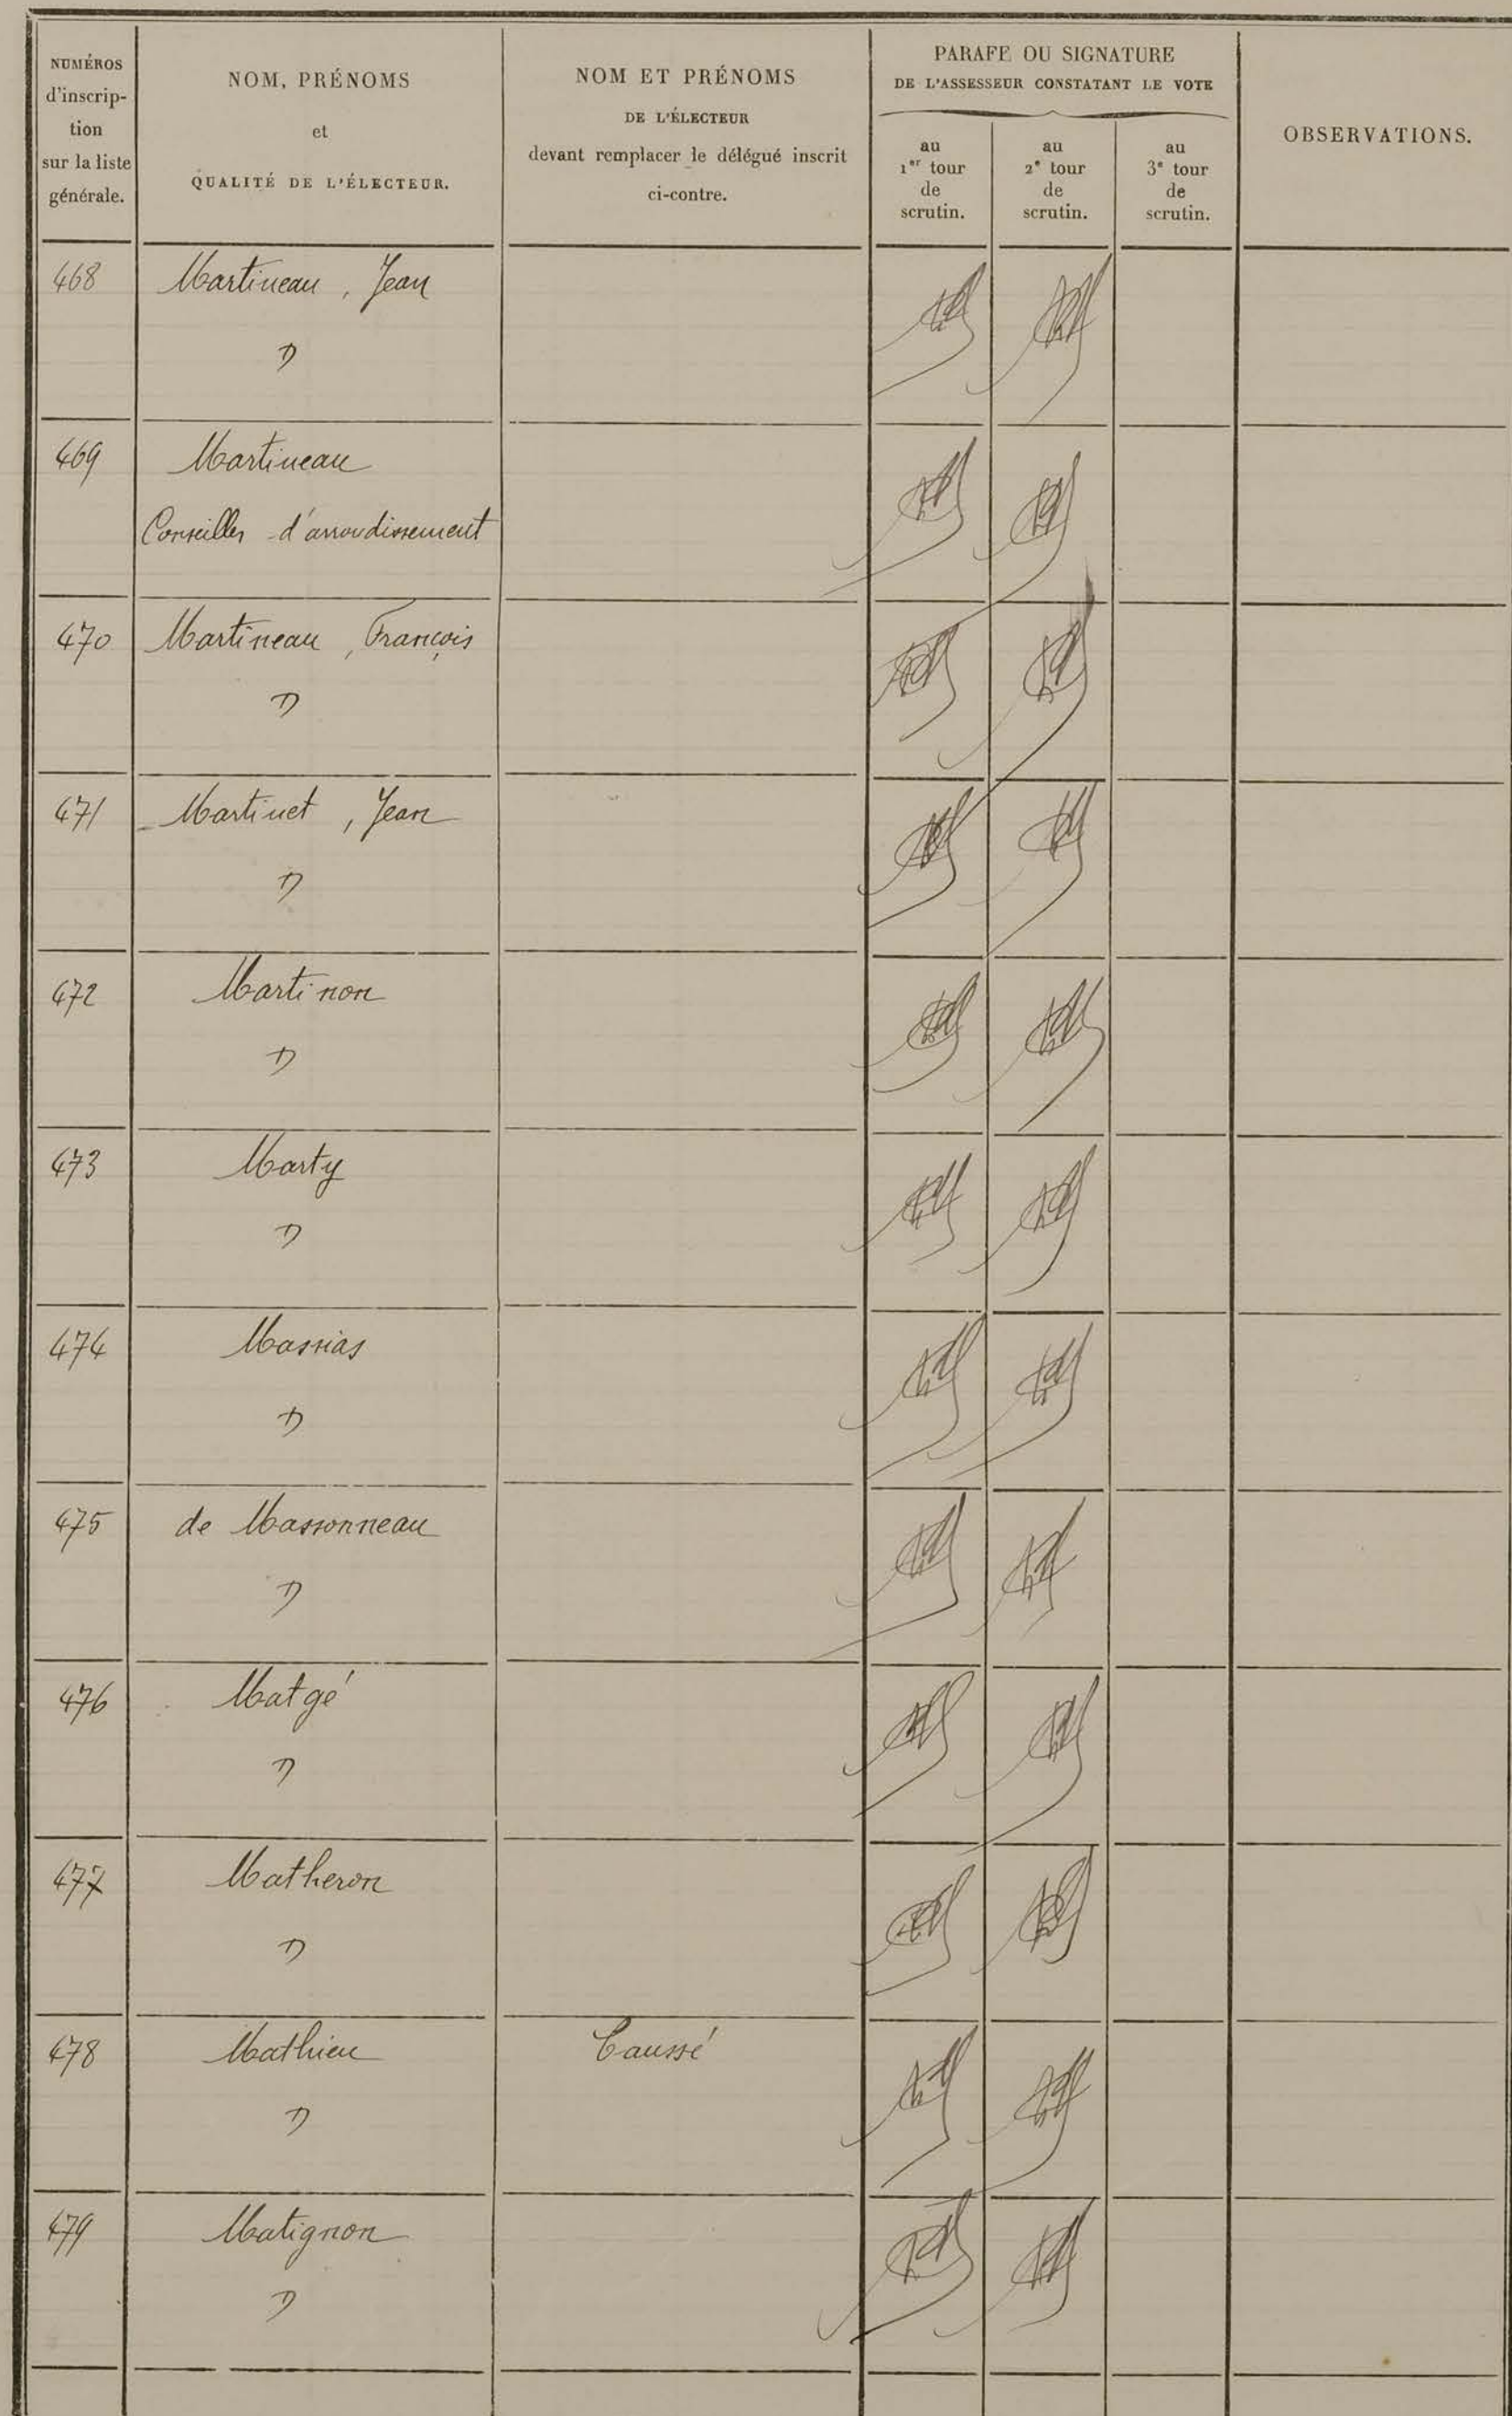 NUMÉROS
d'inscrip-
tion
sur la liste
générale.
NOM, PRÉNOMS
et
QUALITÉ DE L'ÉLECTEUR.
NOM ET PRÉNOMS
DE L'ÉLECTEUR
devant remplacer le délégué inscrit
ci-contre.
PARAFE OU SIGNATURE
DE L'ASSESSEUR CONSTATANT LE VOTE
au
1er tour
de
scrutin.
au
2e tour
de
scrutin.
au
3e tour
de
scrutin.
OBSERVATIONS.
468 Martineau, Jean
"
469 Martineau
Conseiller d'arrondissement
470 Martineau, François
"
471 Martinet, Jean
"
472 Martinon
"
473 Marty
"
474 Massias
"
475 de Massonneau
"
476 Matgé
"
477 Matheron
"
478 Mathieu Caussé
"
479 Matignon
"